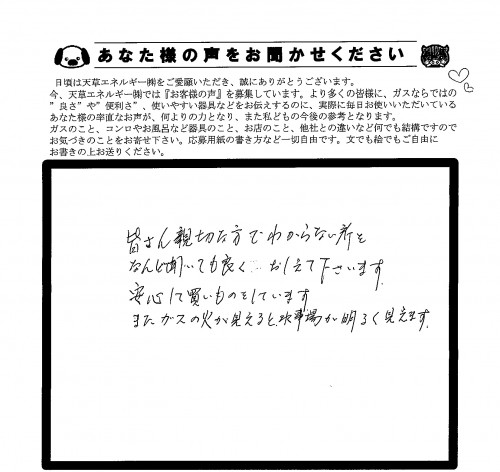 あなた様の声をお聞かせください
日頃は天草エネルギー㈱をご愛願いただき、誠にありがとうございます。
今、天草エネルギー㈱では『お客様の声』を募集しています。より多くの皆様に、ガスならではの
”良さ”や”便利さ”、使いやすい器具などをお伝えするのに、実際に毎日お使いいただいている
あなた様の率直なお声が、何よりの力となり、また私どもの今後の参考となります。
ガスのこと、コンロやお風呂など器具のこと、お店のこと、他社との違いなど何でも結構ですので
お気づきのことをお寄せ下さい。応募用紙の書き方など一切自由です。文でも絵でもご自由に
お書きの上お送りください。
皆さん親切な方でわからない所を
なんど聞いても良く おしえて下さいます
安心して買いものをしています
またガスの火が見えると、炊事場が明るく見えます